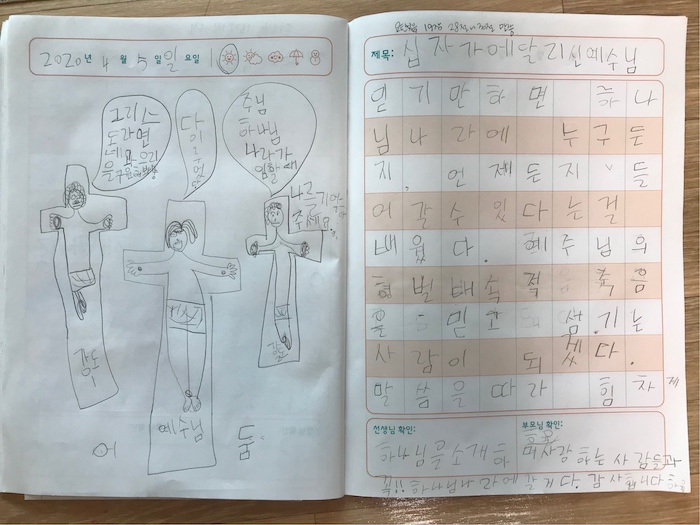 2020년 4월 5일 일요일
그리스
도라면
네 몸과 우리
을 구원하라
다
이루었다
주님
하나님
나라가
임할 때
나를 기억해
주세요.
강도
예수님
강도
어 둠
요한복음 19장 28절 말씀
제목: 십자가에 달리신 예수님
믿기만 하면 하나
님 나라에 누구든
지, 언제든지 들
어갈 수 있다는 걸
배웠다. 예수님의
형벌 대속적 죽음
을 믿고 섬기는
사람이 되겠다.
말씀을 따라 힘차게
선생님 확인: 부모님 확인:
하나님을 소개하며 사랑하는 사람들과
꼭!! 하나님 나라에 갈거다. 감사합니다